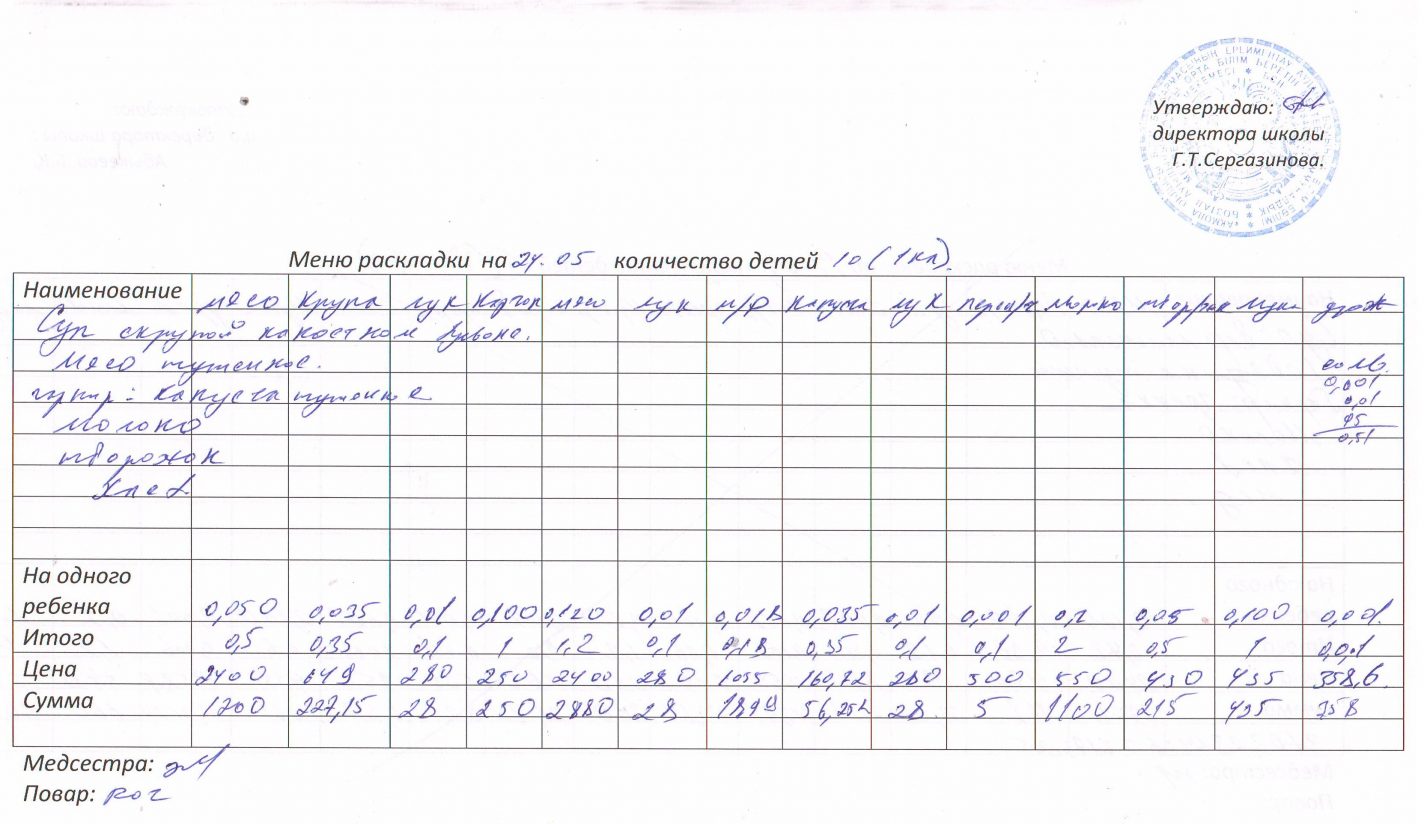 Утверждаю:
директора школы
Г.Т.Сергазинова.
Меню раскладки на 24.05 количество детей 10 (1кл).
Наименование мясо крупа лук мясо лук капуста лук мука дрож
Суп с крупой на костном
Мясо тушенное. соль
гарнир: капуста тушенное 0,001
0,01
Молоко 0,51
творожок
Хлеб
На одного
ребенка 0,050 0,035 0,01 0,100 0,120 0,01 0,018 0,035 0,01 0,001 0,2 0,05 0,100 0,001
Итого 0,5 0,35 0,1 1 1,2 0,1 0,18 0,35 0,1 0,1 2 0,5 1 0,01
Цена 2400 649 280 250 2400 280 1055 160,72 280 500 550 430 435 358,6
Сумма 1200 227,15 28 250 2880 28 56,252 28 5 1100 215 435 358
Медсестра:
Повар: